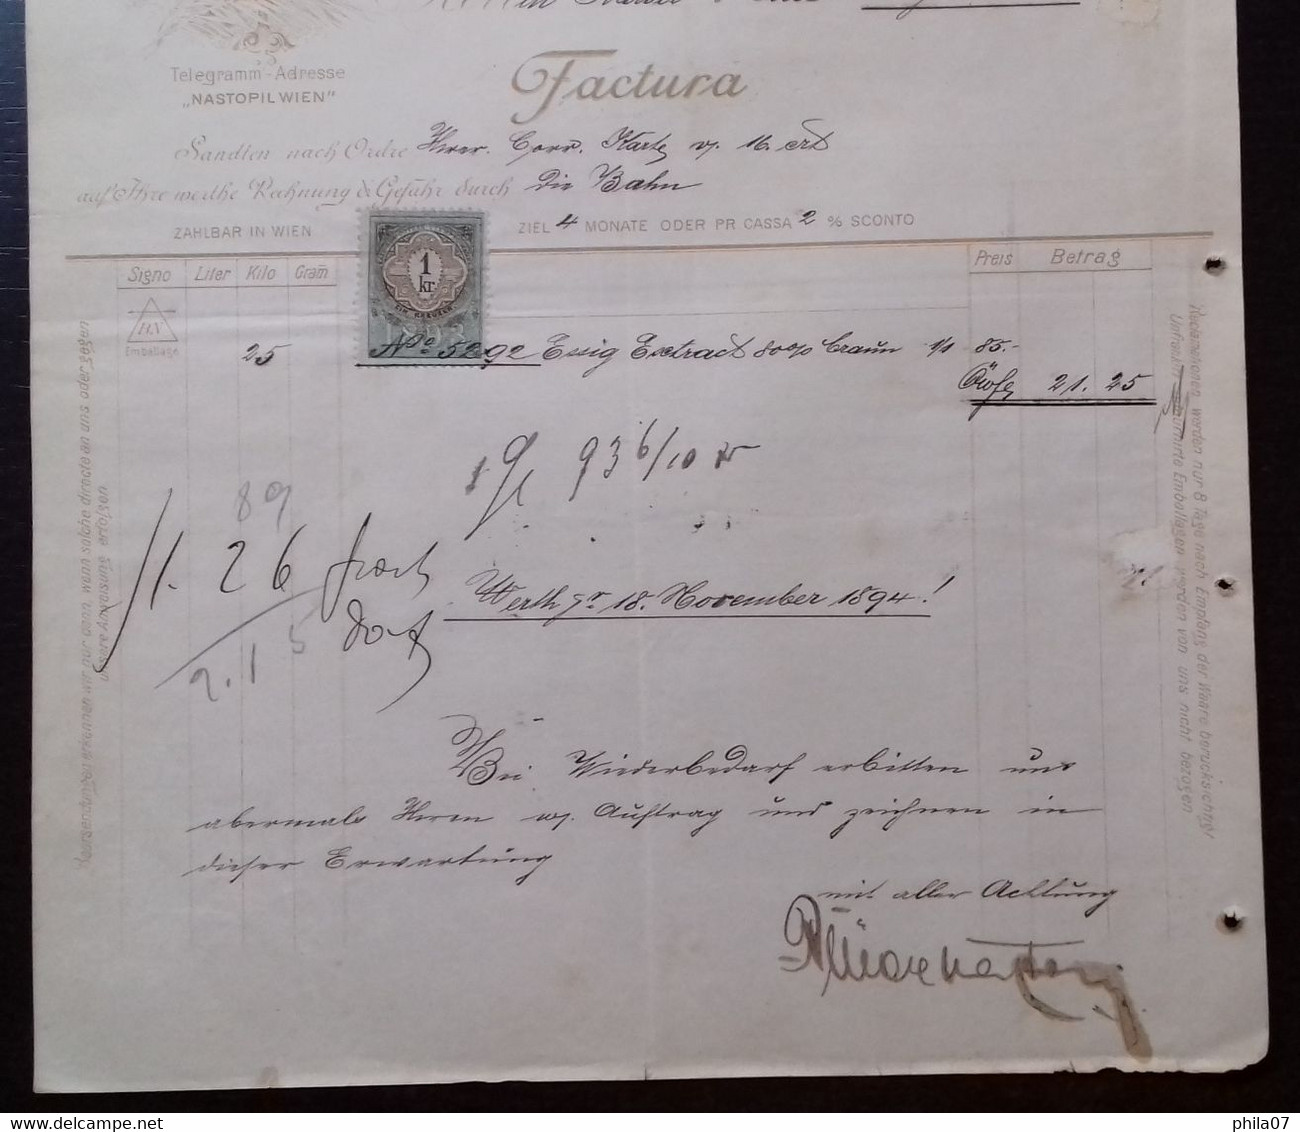 Telegramm-Adresse
„NASTOPIL WIEN"
Factura
Sandten nach Ordre Corr. Karte v. 16. crt
auf Ihre werthe Rechnung & Gefahr durch die Bahn
ZAHLBAR IN WIEN
ZIEL 4 MONATE ODER PR CASSA 2 % SCONTO
Signo Liter Kilo Gram Preis Betrag
B.N
Emballage
1
kr.
EIN KREUZER
25 No 5292 Essig Extract 80% braun 1/1 85.-
21.25
936/10
89
1.26
2.15
Werth pr 18. November 1894!
Bei Wiederbedarf erbitten uns
abermals Ihren w. Auftrag und zeichnen in
dieser Erwartung
mit aller Achtung
Rücksendungen erkennen wir nur dann, wenn solche directe an uns oder gegen
unsere Anweisung erfolgen
Reclamationen werden nur 8 Tage nach Empfang der Waare berücksichtigt
Emballagen werden von uns nicht bezogen
phila07